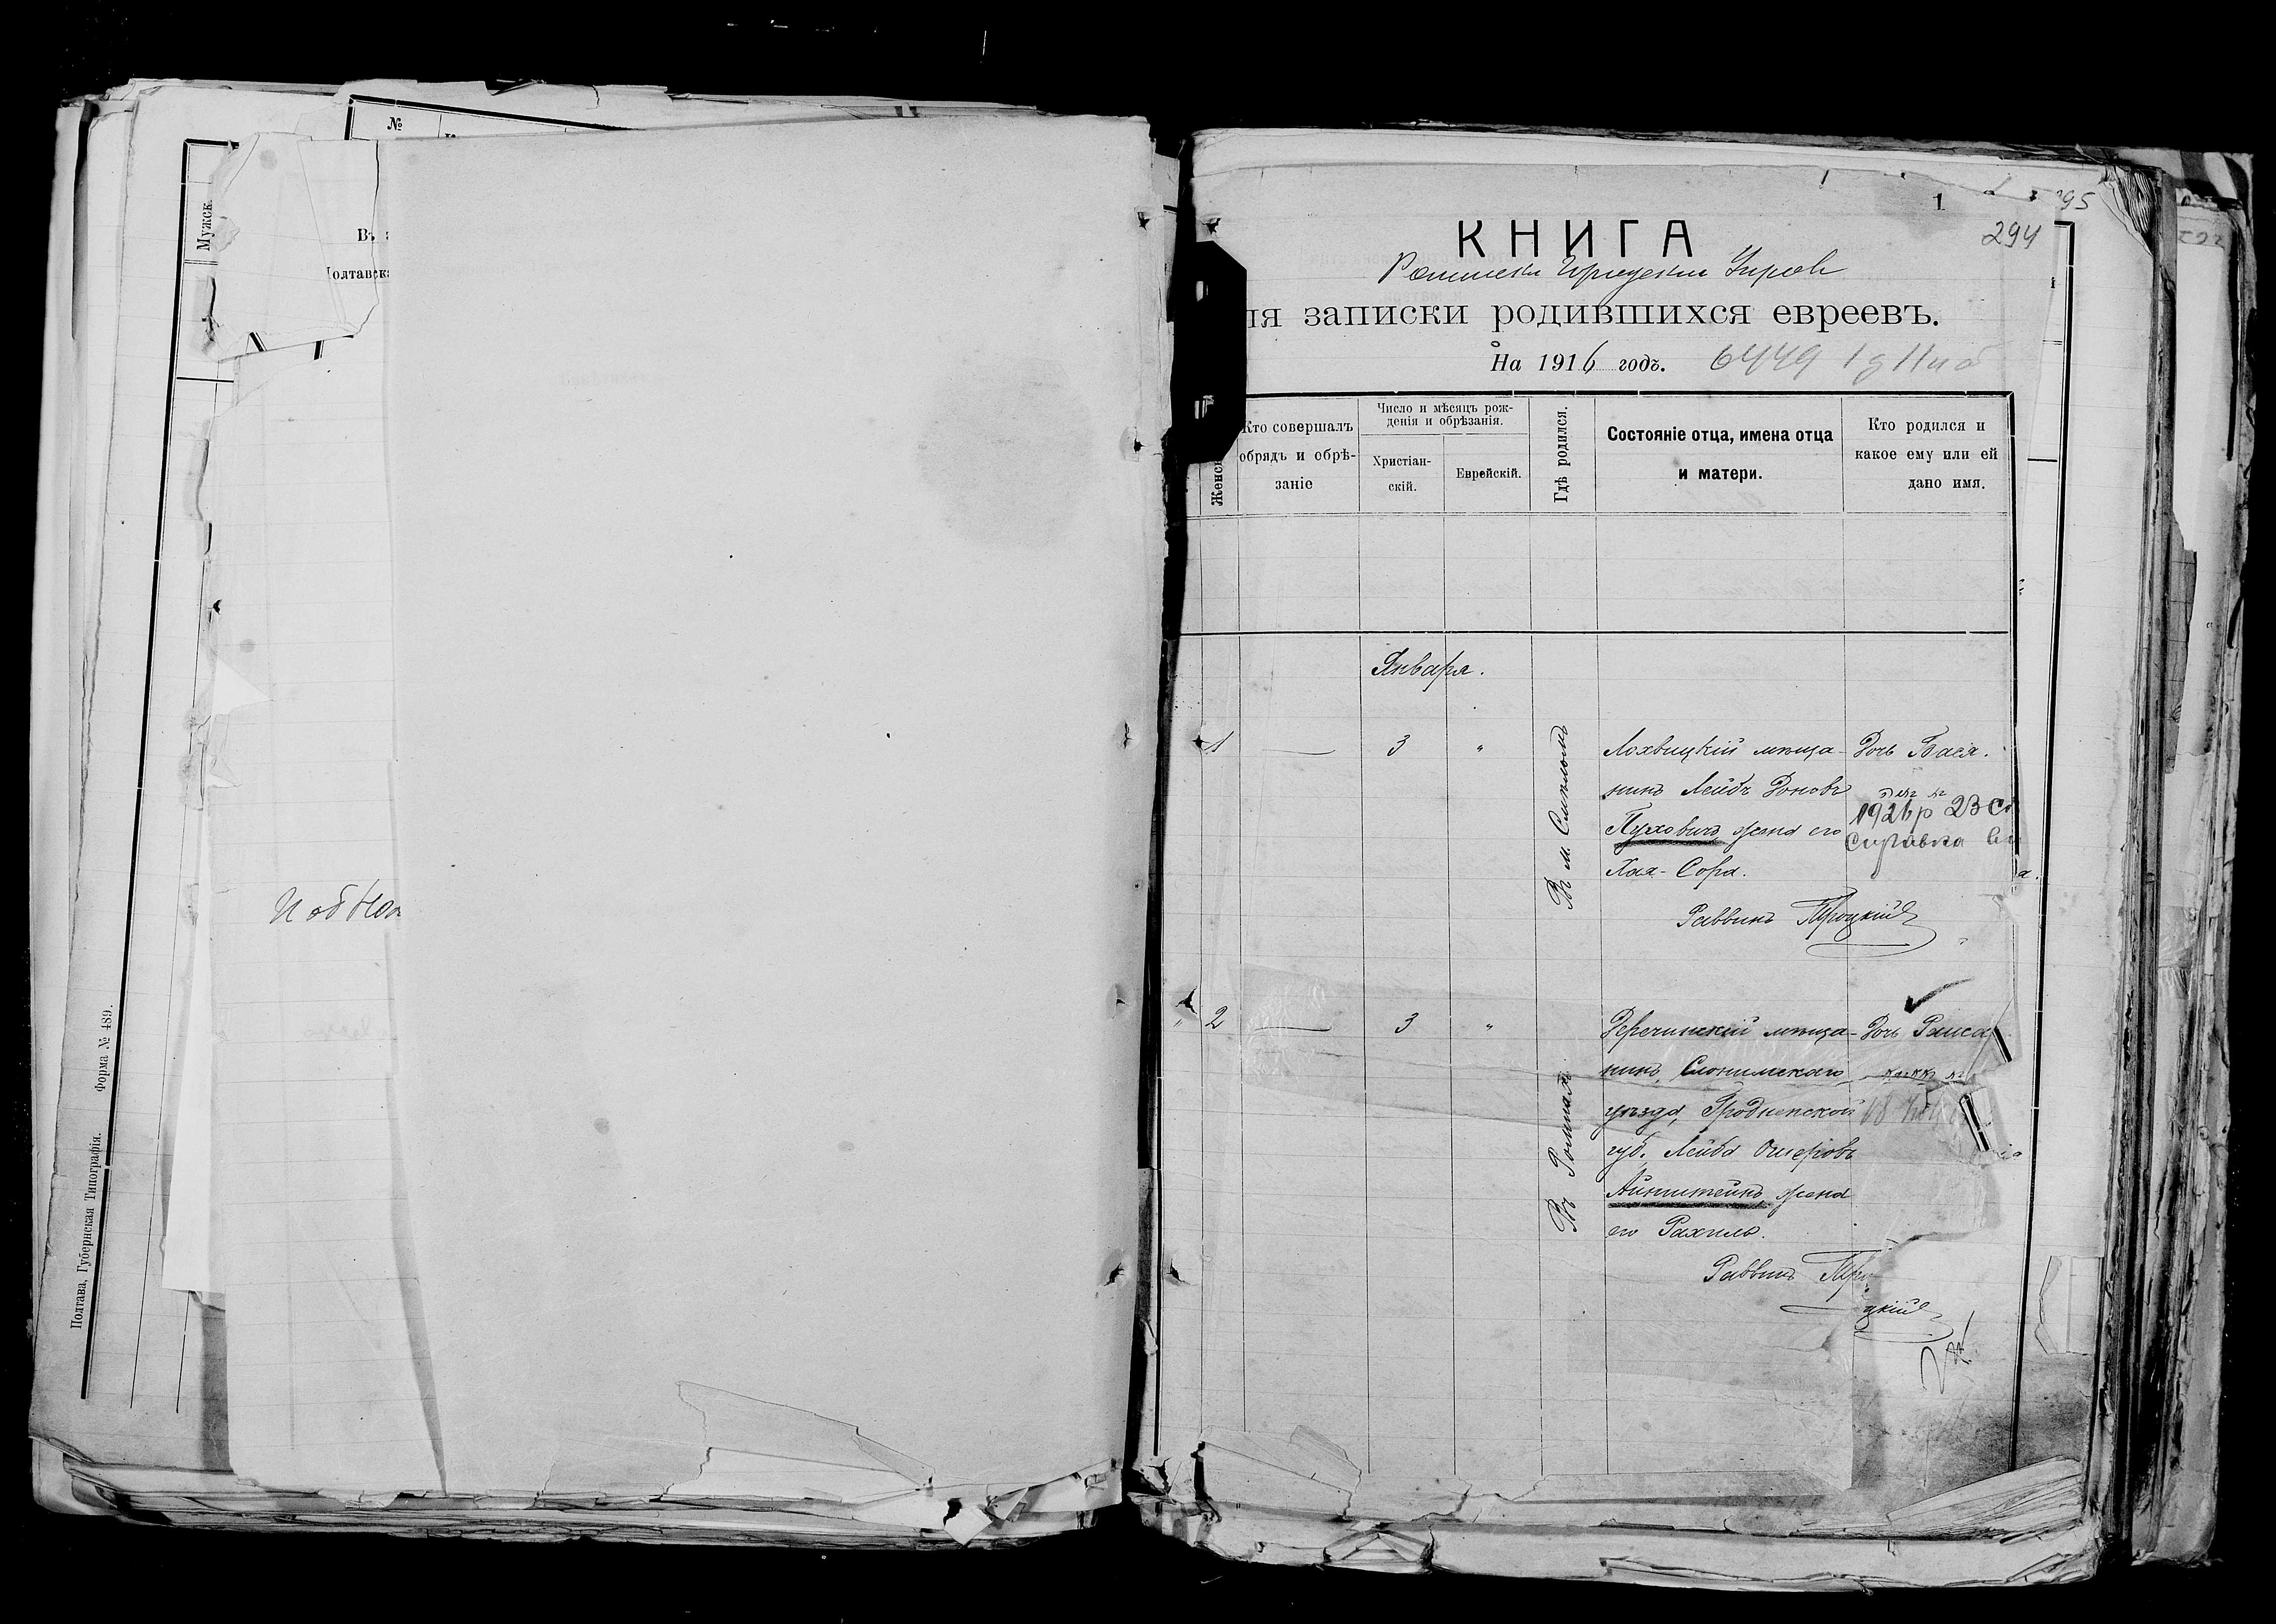 №
Мужск.
Въ
Полтавск
И об
Полтава, Губернская Типографія. Форма № 489.
1
295
294
КНИГА
ля записки родившихся евреевъ.
На 1916 годъ. 6449
Женск
Кто совершалъ обрядъ и обрѣ-
заніе
Число и мѣсяцъ рож-
денія и обрѣзанія.
Христіан-
скій.
Еврейскій.
Гдѣ родился.
Состояніе отца, имена отца
и матери.
Кто родился и
какое ему или ей
дано имя.
Января.
1 — 3 "
Въ м. Смѣломъ
Лохвицкій мѣща-
нинъ Лейбъ
Пуховичъ, жена его
Хая-Сора.
Раввинъ Троцкій
Дочь Бася.
1926 р 23
Справка
" 2 — 3 "
Въ Ромнахъ
Деречинскій мѣща-
нинъ, Слонимскаго
уѣзда, Гродненской
губ. Лейба Ошеровъ
Айнштейнъ, жена
его Рахиль.
Раввинъ Тро-
цкій
Дочь Раиса